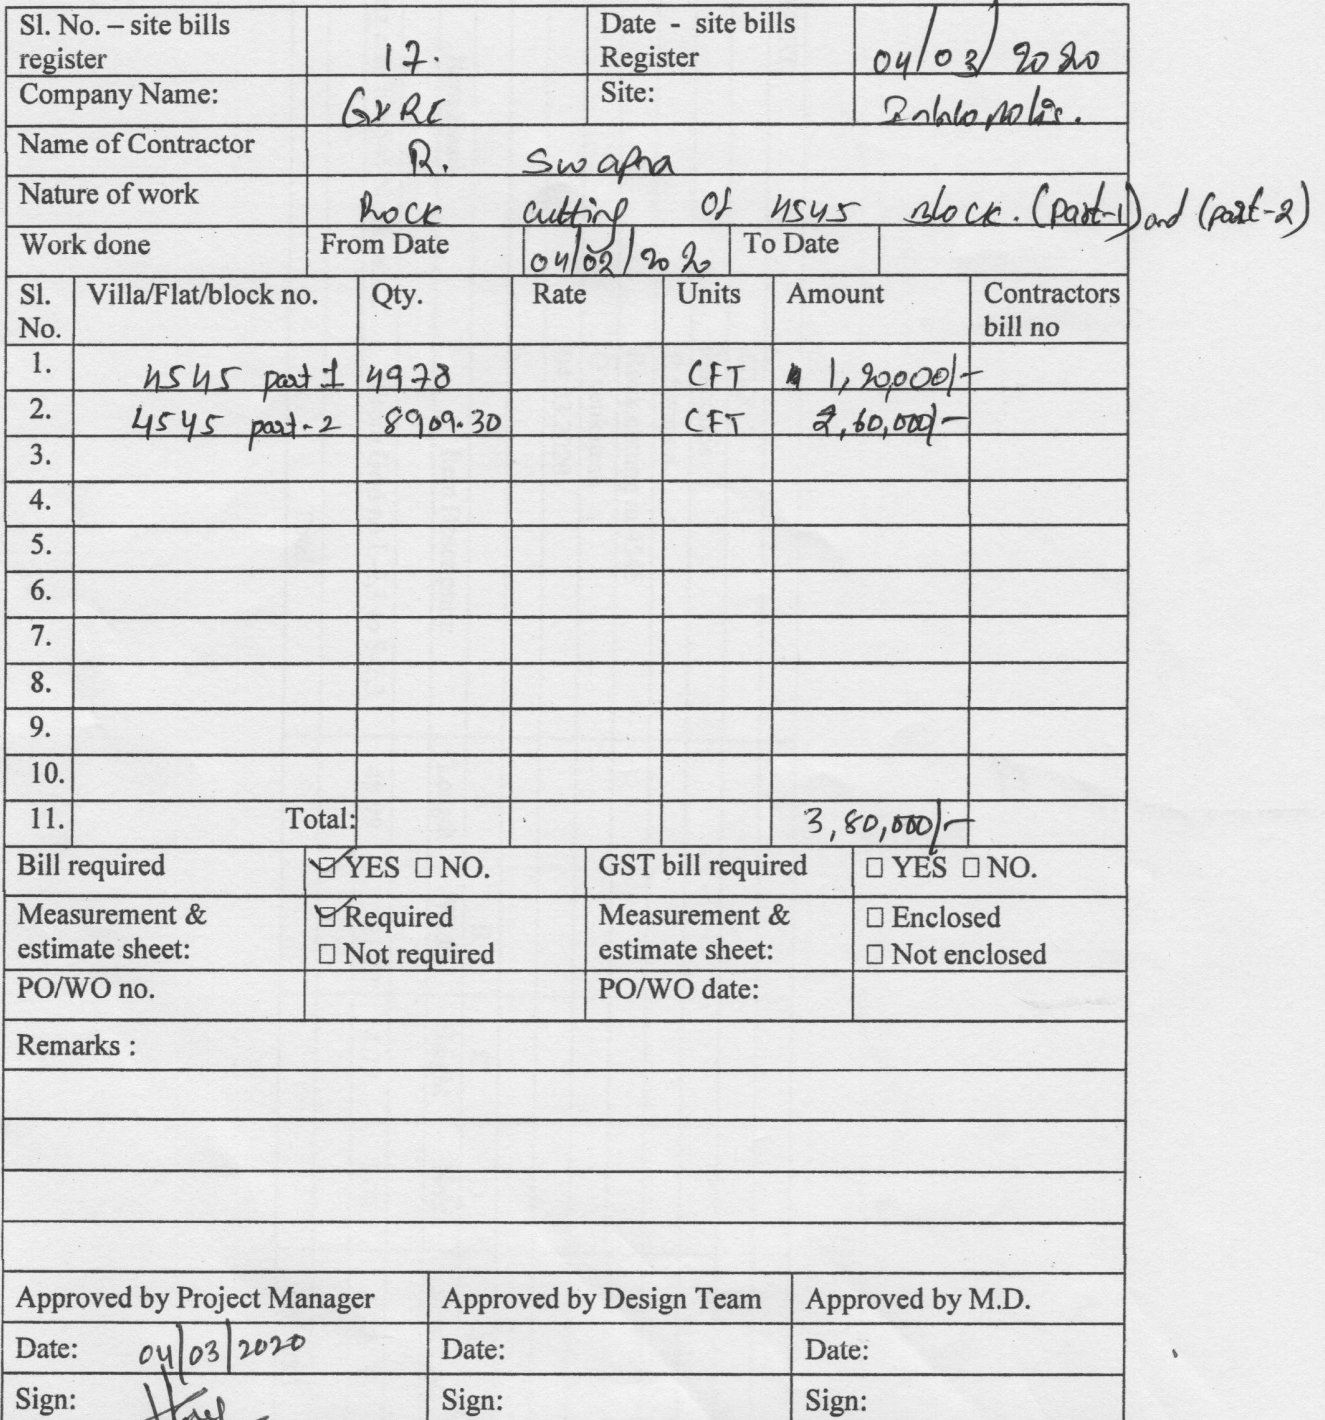 Sl. No. – site bills register 17. Date - site bills Register 04/03/2020
Company Name: GVRC Site: Innopolis.
Name of Contractor R. Swapna
Nature of work Rock cutting of 4545 Block. (part-1) and (part-2)
Work done From Date 04/02/2020 To Date
Sl. No. Villa/Flat/block no. Qty. Rate Units Amount Contractors bill no
1. 4545 part 1 4978 CFT 1,20,000/-
2. 4545 part-2 8909.30 CFT 2,60,000/-
3.
4.
5.
6.
7.
8.
9.
10.
11. Total: 3,80,000/-
Bill required ☑ YES □ NO. GST bill required □ YES □ NO.
Measurement & estimate sheet: ☑ Required □ Not required Measurement & estimate sheet: □ Enclosed □ Not enclosed
PO/WO no. PO/WO date:
Remarks :
Approved by Project Manager Approved by Design Team Approved by M.D.
Date: 04/03/2020 Date: Date:
Sign: Sign: Sign: